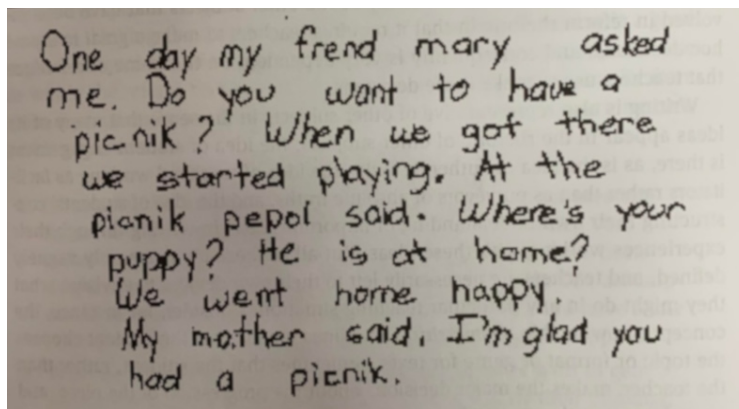 One day my frend mary asked
me. Do you want to have a
picnik? When we got there
we started playing. At the
picnik pepol said. Where's your
puppy? He is at home?
We went home happy.
My mother said. I'm glad you
had a picnik.